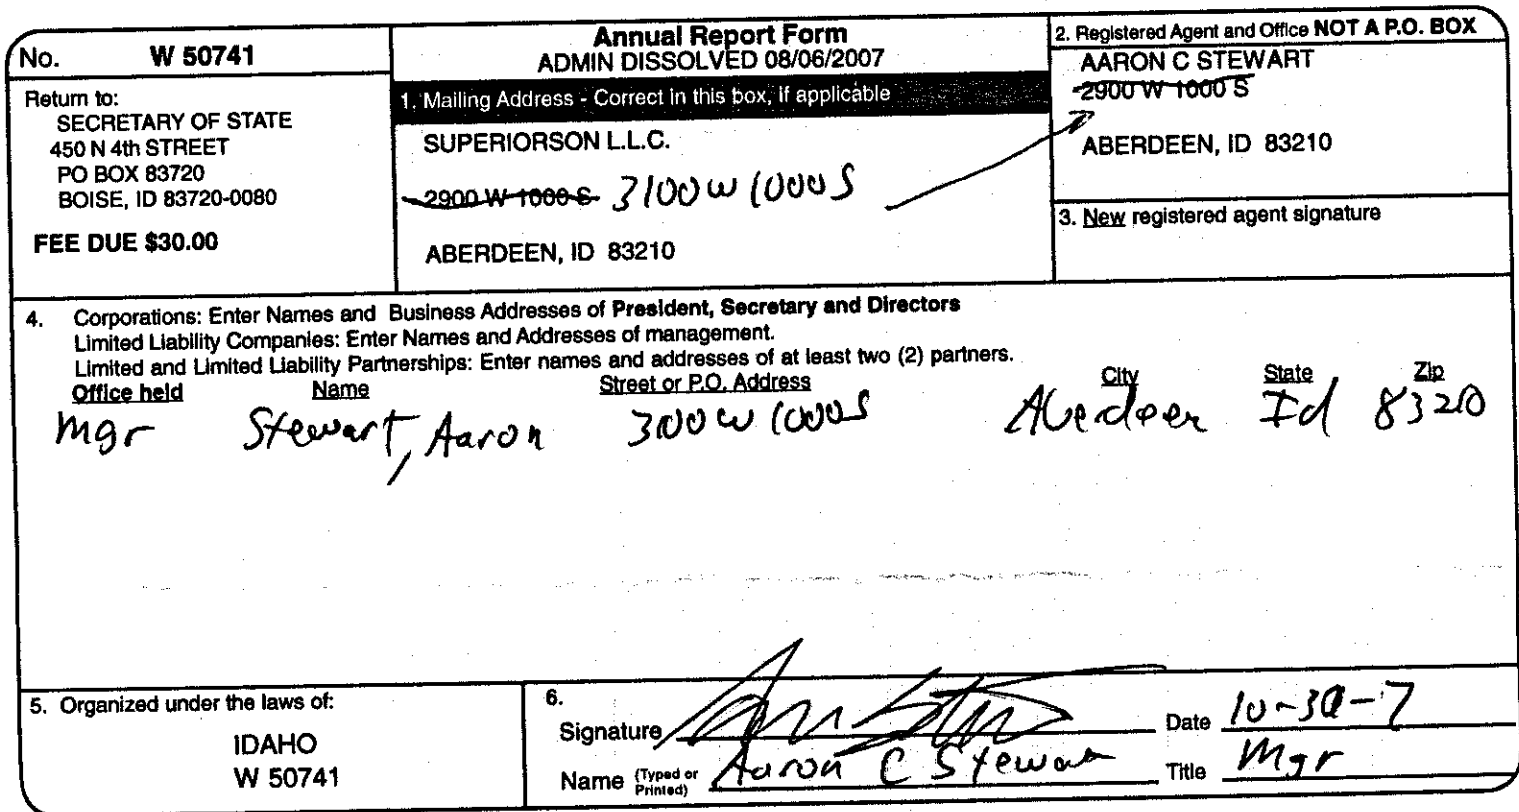 No. W 50741
Return to:
SECRETARY OF STATE
450 N 4th STREET
PO BOX 83720
BOISE, ID 83720-0080
FEE DUE $30.00
Annual Report Form
ADMIN DISSOLVED 08/06/2007
1. Mailing Address - Correct in this box, if applicable
SUPERIORSON L.L.C.
2900 W 1000 S 3100 W 1000 S
ABERDEEN, ID 83210
2. Registered Agent and Office NOT A P.O. BOX
AARON C STEWART
2900 W 1000 S
ABERDEEN, ID 83210
3. New registered agent signature
4. Corporations: Enter Names and Business Addresses of President, Secretary and Directors
Limited Liability Companies: Enter Names and Addresses of management.
Limited and Limited Liability Partnerships: Enter names and addresses of at least two (2) partners.
Office held Name Street or P.O. Address City State Zip
Mgr Stewart, Aaron 3100 W 1000 S Aberdeen Id 83210
5. Organized under the laws of:
IDAHO
W 50741
6.
Signature Date 10-30-7
Name (Typed or Printed) Aaron C Stewart Title Mgr